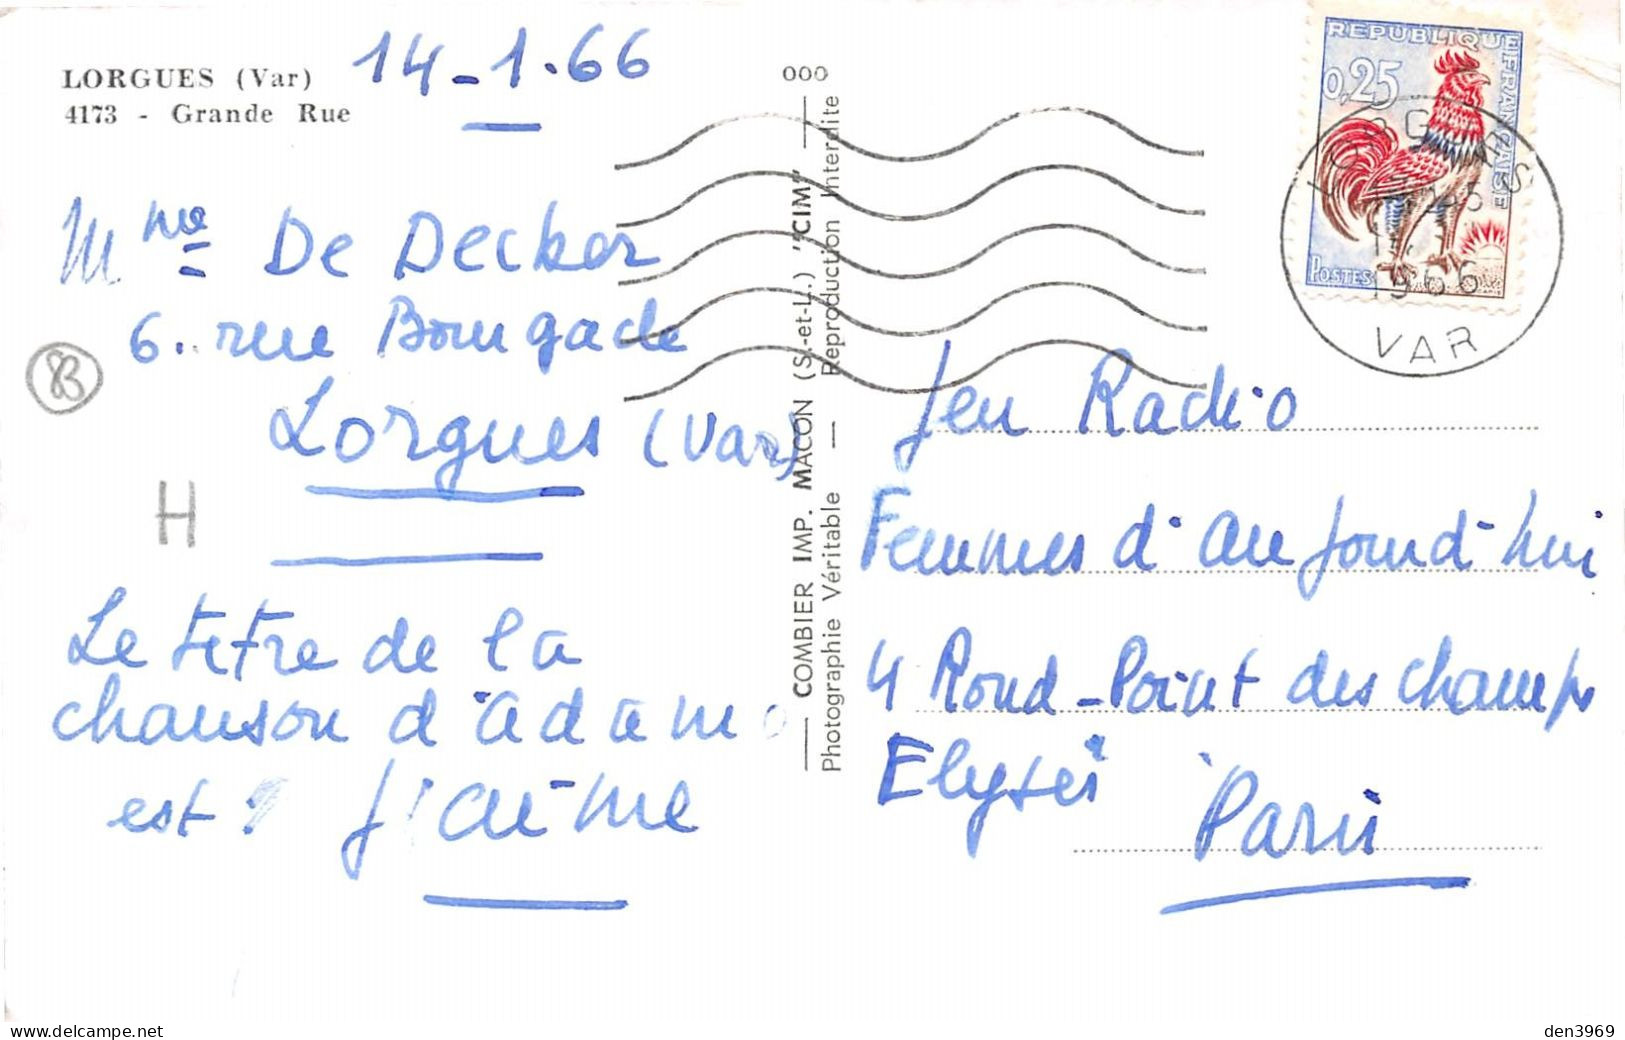 LORGUES (Var)
4173 - Grande Rue
14-1.66
Mme De Decker
6. rue Bourgade
Lorgues (Var)
H
Le tetre de la
chanson d'adamo
est : j'aime
000
COMBIER IMP. MACON (S.-et-L.) "CIM"
Photographie Véritable — Reproduction Interdite
REPUBLIQUE FRANÇAISE
0,25
POSTES
LORGUES
1966
VAR
Jeu Radio
Femmes d'aujourd'hui
4 Rond-Point des champs
Elysés
Paris
delcampe.net
den3969